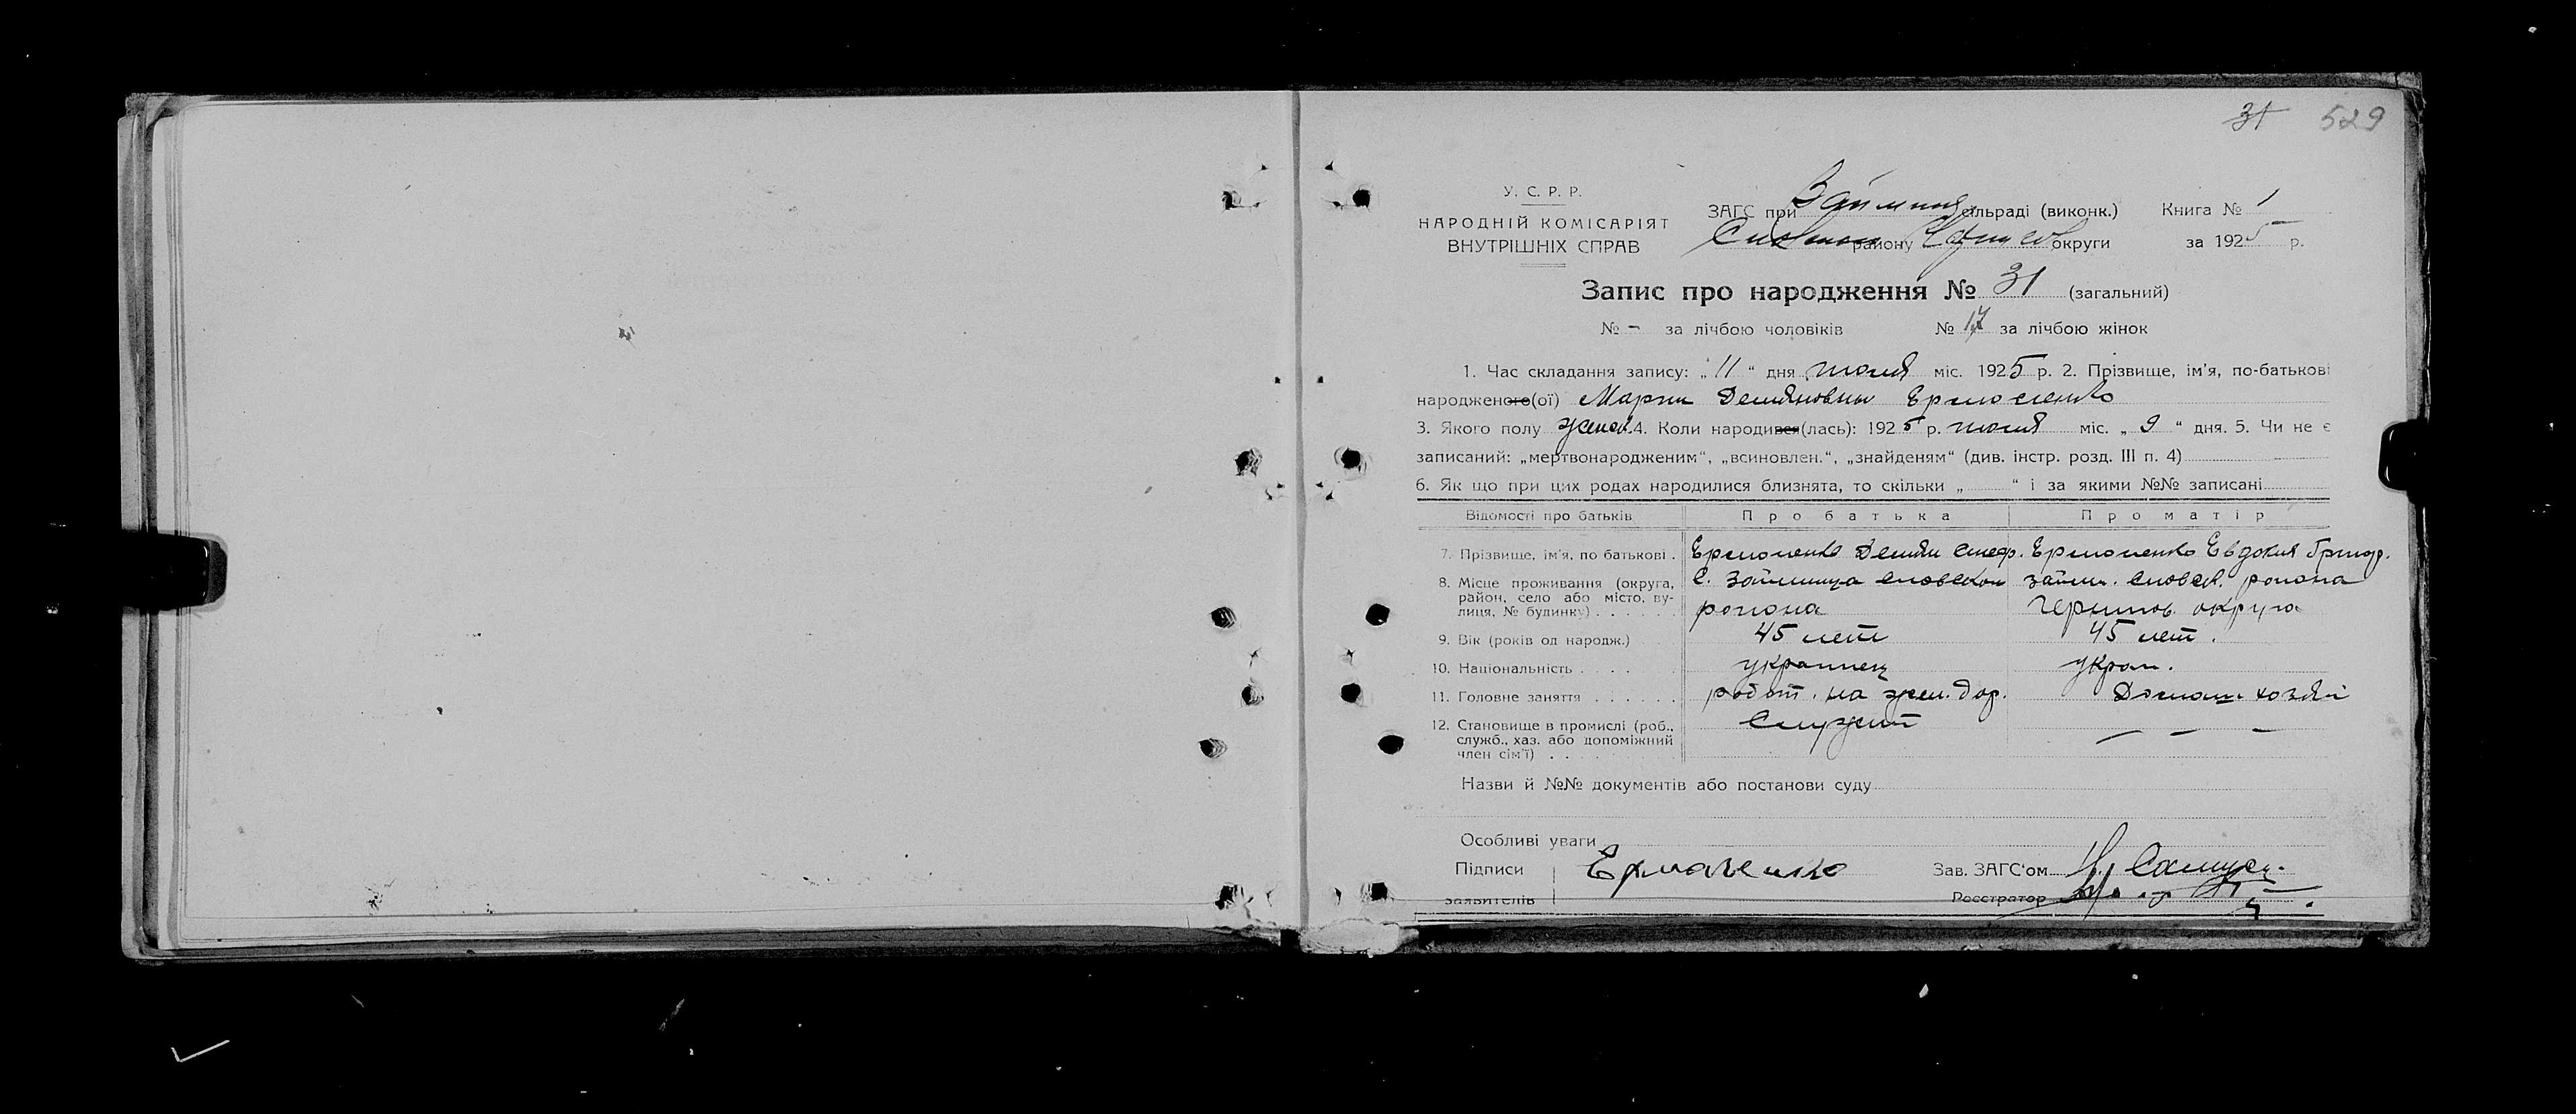 31 529
У. С. Р. Р.
НАРОДНІЙ КОМІСАРІЯТ
ВНУТРІШНІХ СПРАВ
ЗАГС при сільраді (виконк.) Книга № 1
району округи за 1925 р.
Запис про народження № 31 (загальний)
№ - за лічбою чоловіків № 17 за лічбою жінок
1. Час складання запису: „ 11 “ дня июля міс. 1925 р. 2. Прізвище, ім'я, по-батькові
народженого(ої) Мария Демяновны Ермоленко
3. Якого полу женск. 4. Коли народився(лась): 1925 р. июля міс. „ 9 “ дня. 5. Чи не є
записаний: „мертвонародженим“, „всиновлен.“, „знайденям“ (див. інстр. розд. III п. 4)
6. Як що при цих родах народилися близнята, то скільки „ “ і за якими №№ записані
Відомості про батьків Про батька Про матір
7. Прізвище, ім'я, по батькові . Ермоленко Демян Стеф. Ермоленко Евдокия Григор.
8. Місце проживання (округа, район, село або місто, вулиця, № будинку) . . . . . С. Займища Сновского займ. Сновск. района
района Чернигов. округа
9. Вік (років од народж.) 45 лет 45 лет.
10. Національність . . . . украинец украин.
11. Головне заняття . . . . . . работ. на жел. дор. Домаш. хозяй
12. Становище в промислі (роб., служб., хаз. або допоміжний член сім'ї) . . . . . . . . Служит - - -
Назви й №№ документів або постанови суду
Особливі уваги
Підписи Ермоленко Зав. ЗАГС'ом
заявителів Реєстратор